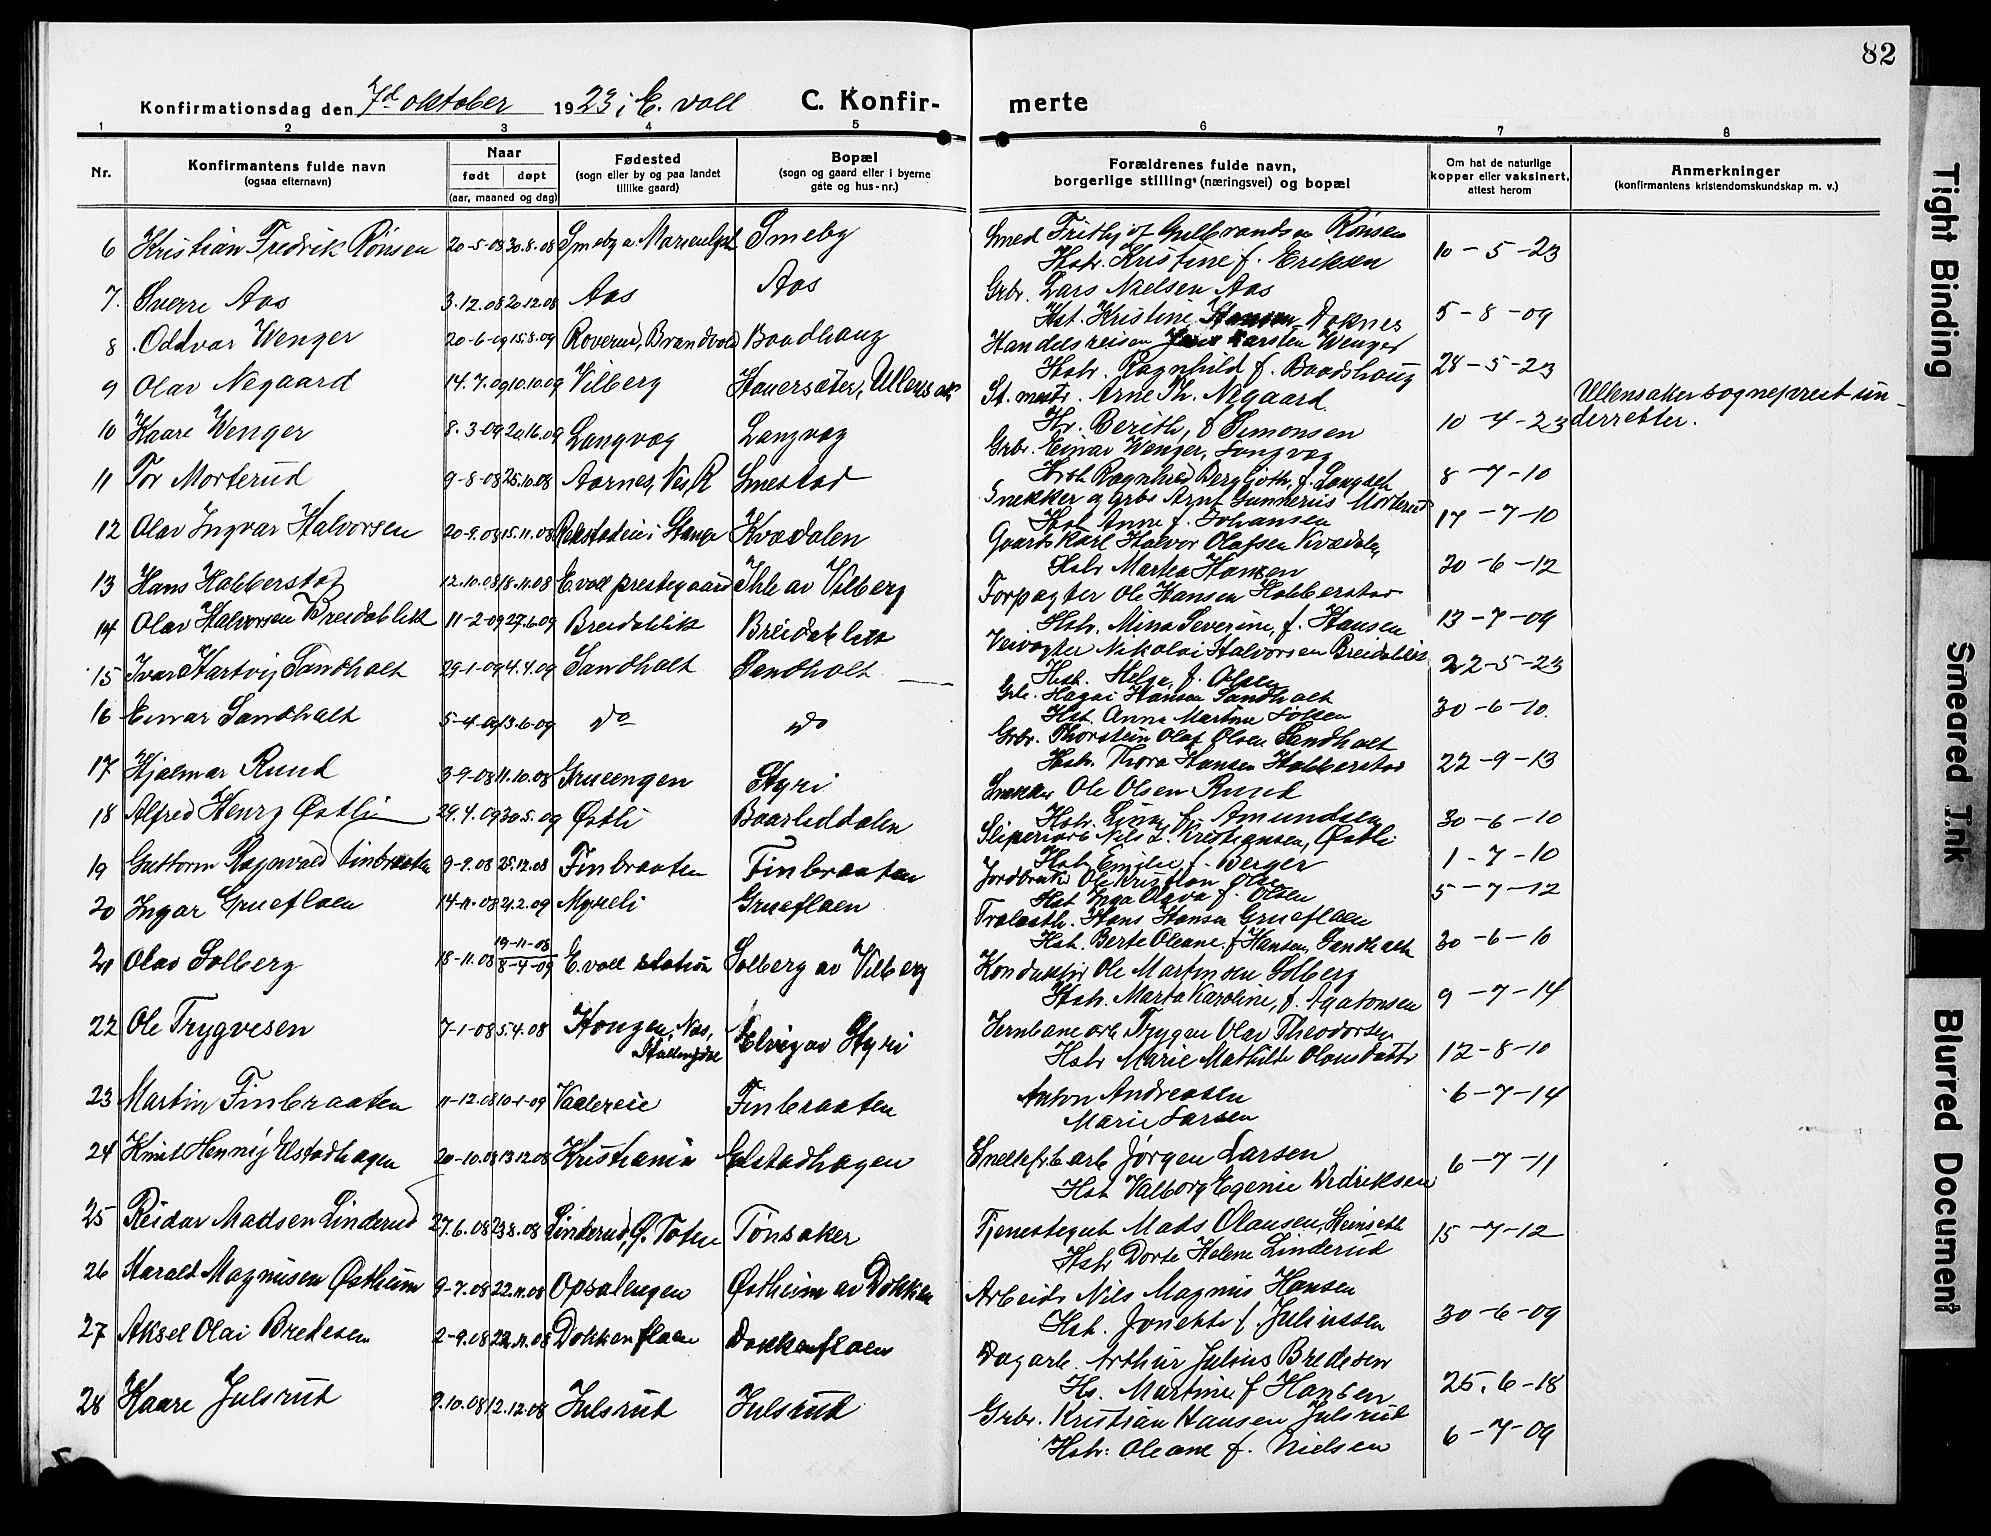 82
Konfirmationsdag den 7d oktober 1923 i E. voll C. Konfir- merte
1 2 3 4 5 6 7 8
Nr. Konfirmantens fulde navn (ogsaa efternavn) Naar født døpt (aar, maaned og dag) Fødested (sogn eller by og paa landet tillike gaard) Bopæl (sogn og gaard eller i byerne gate og hus-nr.) Forældrenes fulde navn, borgerlige stilling (næringsvei) og bopæl Om hat de naturlige kopper eller vaksinert, attest herom Anmerkninger (konfirmantens kristendomskundskap m. v.)
6 Kristian Fredrik Rønsen 20-5-08 30.8.08 Smeby a. Smeby Smed Frithjof Gulbrandsen Rønsen 10-5-23
Hstr. Kristine f. Eriksen
7. Sverre Aas 3.12.08 20.12.08 Aas Aas Grbr. Lars Nielsen Aas 5-8-09
Hst. Kristine Doknes
8 Oddvar Wenger 20-6-09 15.8.09 Roverud, Brandvold Baadhaug Handelsreisen Karsten Wenger 28-5-23
Hstr. Ragnhild f. Baadshaug
9 Olav Negaard 14.7.09 10.10.09 Vilberg Hauersæter, Ullensak St. mestr. Arne Th. Negaard 10-4-23 Ullensaker sogneprest un-
Hr. Berith, f Simonsen derretter.
10 Kaare Wenger 8.3-09 Langvag Langvag Grbr. Einar Wenger, Langvag 8-7-10
Hstr Ragnhild Bergljoth, f. Langseth
11 Tor Morterud 9-8-08 25.10.08 Aarnes, Nes, R Smestad Snekker og Grbr Arnt Gunnerius Morterud 17-7-10
Hst Anne f. Johansen
12 Olav Ingvar Halvorsen 20-9.08 15.11.08 i Stange Kvædalen Gaardskarl Halvor Olafsen Kvædalen 20-6-12
Hstr Martea Hansen
13 Hans Habberstad 12.10.08 18.11.08 E.voll prestegaard Ihle av Vilberg Forpagter Ole Hansen Habberstad 13-7-09
Hstr. Mina Severine, f. Hansen
14 Olav Halvorsen Breidablik 11-2-09 27.6.09 Breidablik Breidablik Veivogter Nikolai Halvorsen Breidablik 22-5-23
Hst. Helga, f. Olsen
15 Ivar Hartvig Sandholt 29-1-09 4.4.09 Sandholt Sandholt Grbr. Hagai Hansen Sandholt 30-6-10.
Hst. Anna Martine
16 Einar Sandholt 5-4-09 13.6-09 do do Grbr. Thorstein Olaf Olsen Sandholt 22-9-13
Hstr. Thora Hansen Habberstad
17 Hjalmar Ruud 3-9-08 11.10.08 Grueengen Styri Snekker Ole Olsen Ruud 30-6-10
Hstr. Lina f. Amundsen
18 Alfred Henry Østli 29.4.09 30.5.09 Østli Baarliddalen Sliperiarb Nils L. Kristiansen, Østli 1-7-10
Hst Emilie f. Berger
19 Guttorm Ragnvald Finbraaten 9-9.08 25.12.08 Finbraaten Finbraaten Jordbruk Ole Kristian Olsen 5-7-12
Hst Inga Olava f. Olsen
20 Ingar Grueflaen 14-11-08 21.2.09 Myreli Grueflaen Trælasth. Hans Hansen Grueflaen 30-6-10
Hst. Berte Oleane f Hansen, Sandholt
21 Olav Solberg 18-11.08 19-11-08 8-4-09 E.voll station Solberg av Vilberg Konduktør Ole Martinsen Solberg 9-7-14
Hstr. Marta Karoline, f. Agatonsen
22 Ole Trygvesen 7-1-08 5.4.08 Haugen, Nes, Hallingdal Elvig av Styri Jernbanearb Trygve Olav Theodorsen 12-8-10
Hstr Marie Mathilde Olausdatter
23 Martin Finbraaten 11-12.08 10-1-09 Vaalereie Finbraaten Anton Andreasen 6-7-14
Marie Larsen
24 Knut Henry Elstadhagen 20-10.08 13.12.08 Kristiania Elstadhagen Snekkerarb Jørgen Larsen 6-7-11
Hst Valborg Egenie Didriksen
25 Reidar Madsen Linderud 27.6.08 23.8.08 Linderud, Ø. Toten Tønsaker Tjenestegut Mads Olausen, 15-7-12
Hstr Dorte Helene Linderud
26 Harald Magnusen Østheim 9-7.08 22.11.08 Opsalengen Østheim av Dokken Arbeidr Nils Magnus Hansen 30-6-09
Hst. Jonette f Juliussen
27 Aksel Olai Bredesen 2-9.08 22.11.08 Dokkenflaen Dokkenflaen Dagarb. Arthur Julius Bredesen 25.6-18
Hs. Martine f Hansen
28 Kaare Julsrud 9.10.08 12.12.08 Julsrud Julsrud Grbr. Kristian Hansen Julsrud 6-7-09
Hstr: Oleane f. Nielsen
Tight Binding
Smeared Ink
Blurred Document